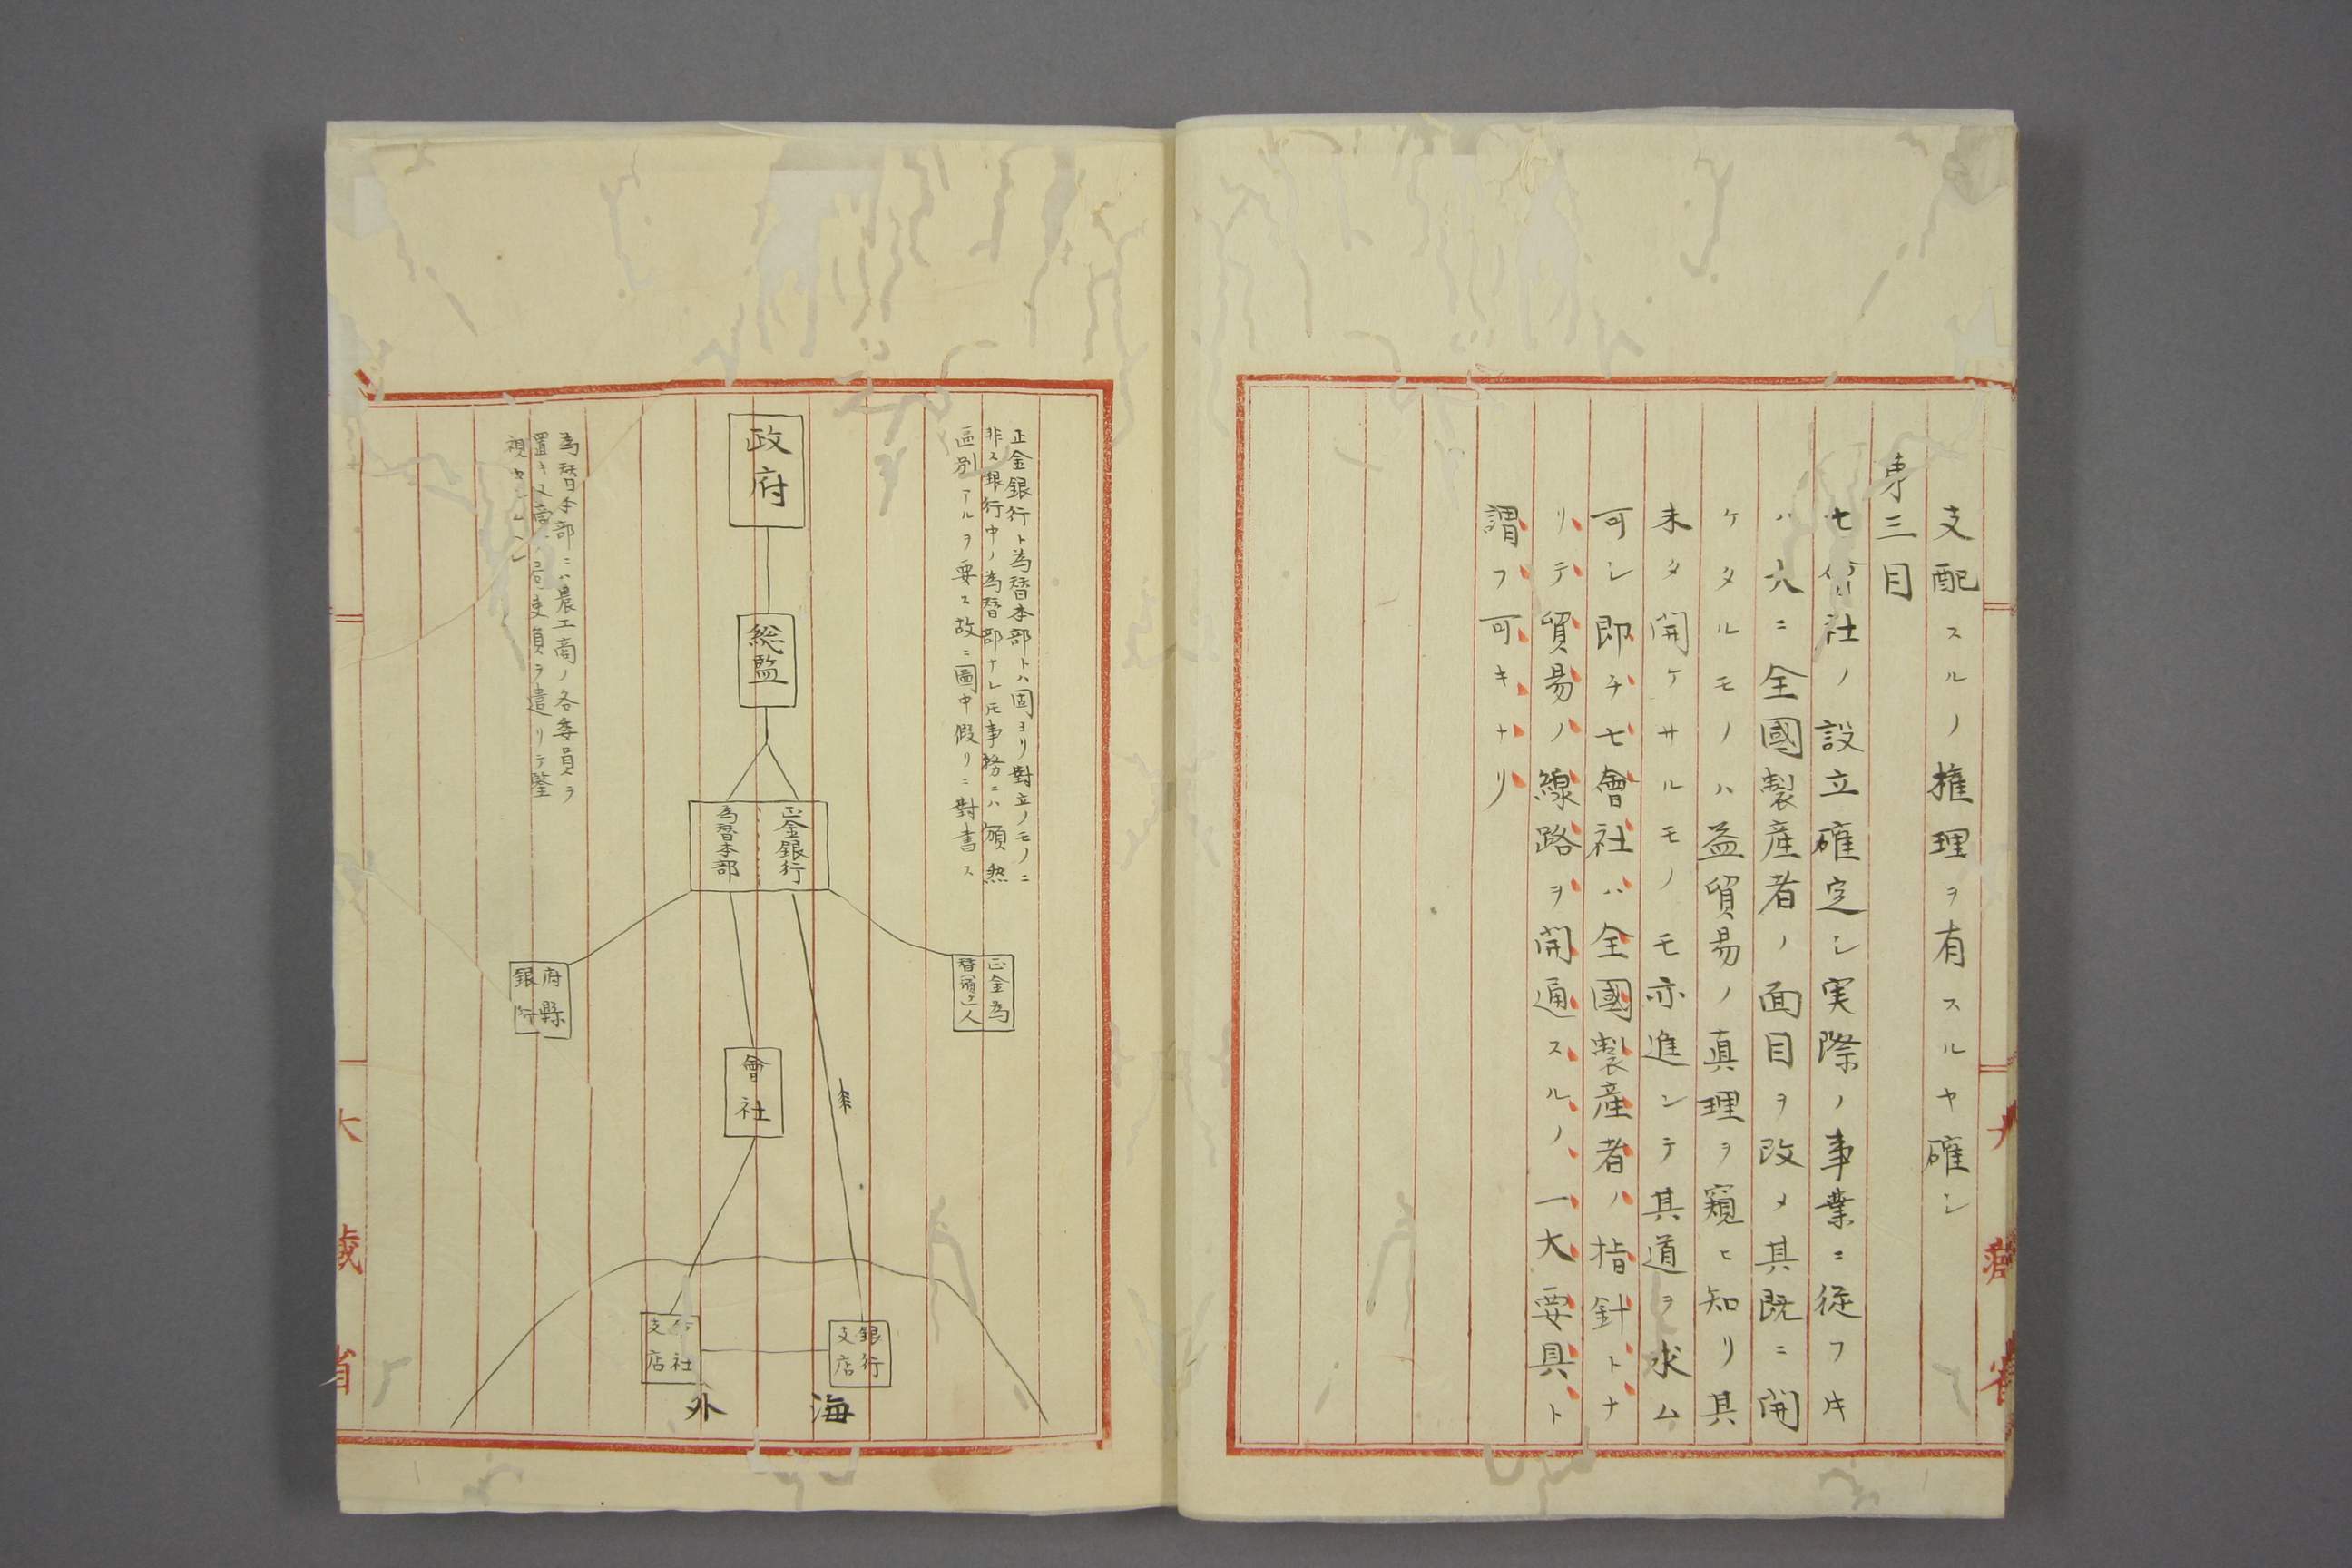 支配スルノ権理ヲ有スルヤ確シ
東三目
七會社ノ設立確定シ実際ノ事業ニ從フキ
ハ大ニ全國製産者ノ面目ヲ改メ其既ニ開
ケタルモノハ益貿易ノ真理ヲ窺ヒ知リ其
未タ開ケサルモノモ亦進ンテ其道ヲ求ム
可シ即チ七會社ハ全國製産者ノ指針トナ
リテ貿易ノ線路ヲ開通スルノ一大要具ト
謂フ可キナリ
大藏省
正金銀行ト為替本部トハ固ヨリ對立ノモノニ
非ス銀行中ノ為替部ナレ𪜈事務ニハ頒然
區別アルヲ要ス故ニ圖中假リニ對書ス
政府
総監
正金銀行
為替本部
正金為
替人
府縣
銀行
會社
銀行
支店
會社
支店
海外
為替本部ニハ農工商ノ各委員ヲ
置キ又商局吏員ヲ遣リテ鑒
視セシムヘシ
大藏省